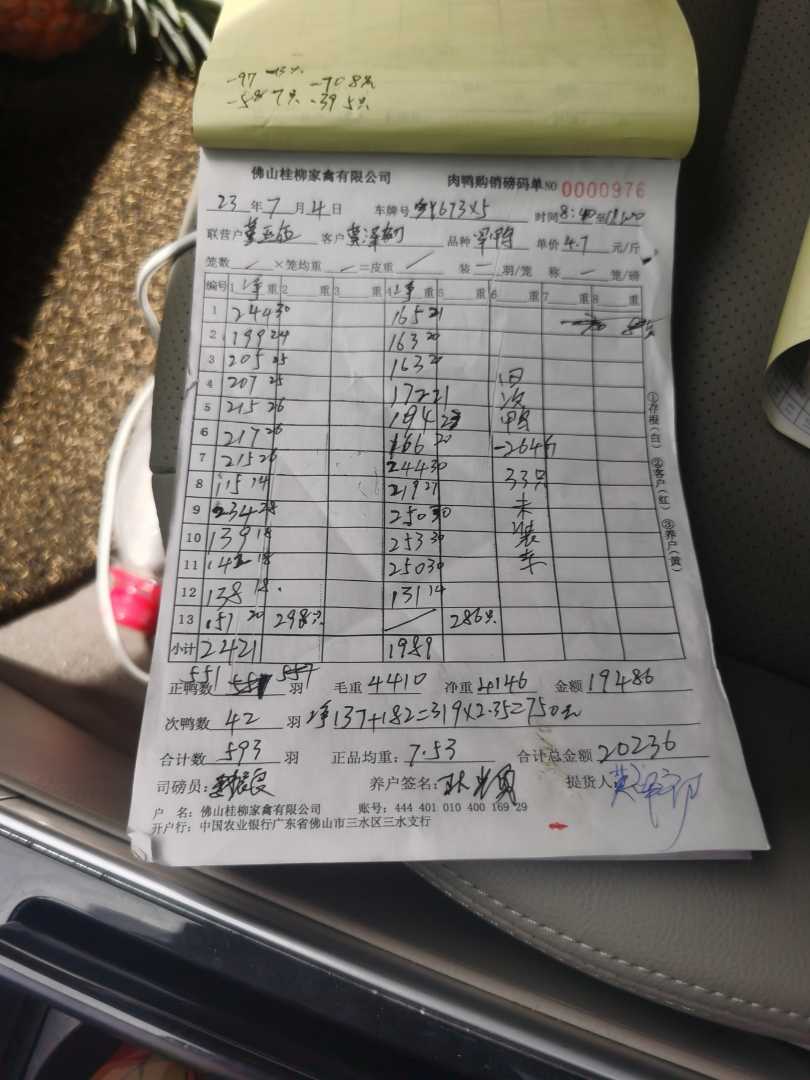 -97 -13只 -70 8只
-58 7只 -39 5只
佛山桂柳家禽有限公司 肉鸭购销磅码单 NO 0000976
23 年 7 月 4 日 车牌号 673X5 时间 8:40 至
联营户 客户 黄泽 品种 单价 4.7 元/斤
笼数 ×笼均重 =皮重 装 一 羽/笼 称 笼/磅
编号 1 净 重 2 重 3 重 4 净 重 5 重 6 重 7 重 8 重
1 244 30 165 21
2 199 24 163 20
3 205 25 163 20
4 207 25 172 21 旧
5 215 26 194 次
6 217 26 166 20 鸭
7 215 26 244 30 -264斤
8 115 14 219 27 33只
9 234 28 250 30 未
10 139 18 253 30 装
11 142 18 250 30 车
12 138 18 131 14
13 151 20 298只 286只
小计 2421 1989
①存根(白) ②客户(红) ③养户(黄)
正鸭数 551 羽 毛重 4410 净重 4146 金额 19486
次鸭数 42 羽 净137+182=319×2.35=750元
合计数 593 羽 正品均重: 7.53 合计总金额 20236
司磅员: 养户签名: 提货人:
户 名: 佛山桂柳家禽有限公司 账号: 444 401 010 400 169 29
开户行: 中国农业银行广东省佛山市三水区三水支行